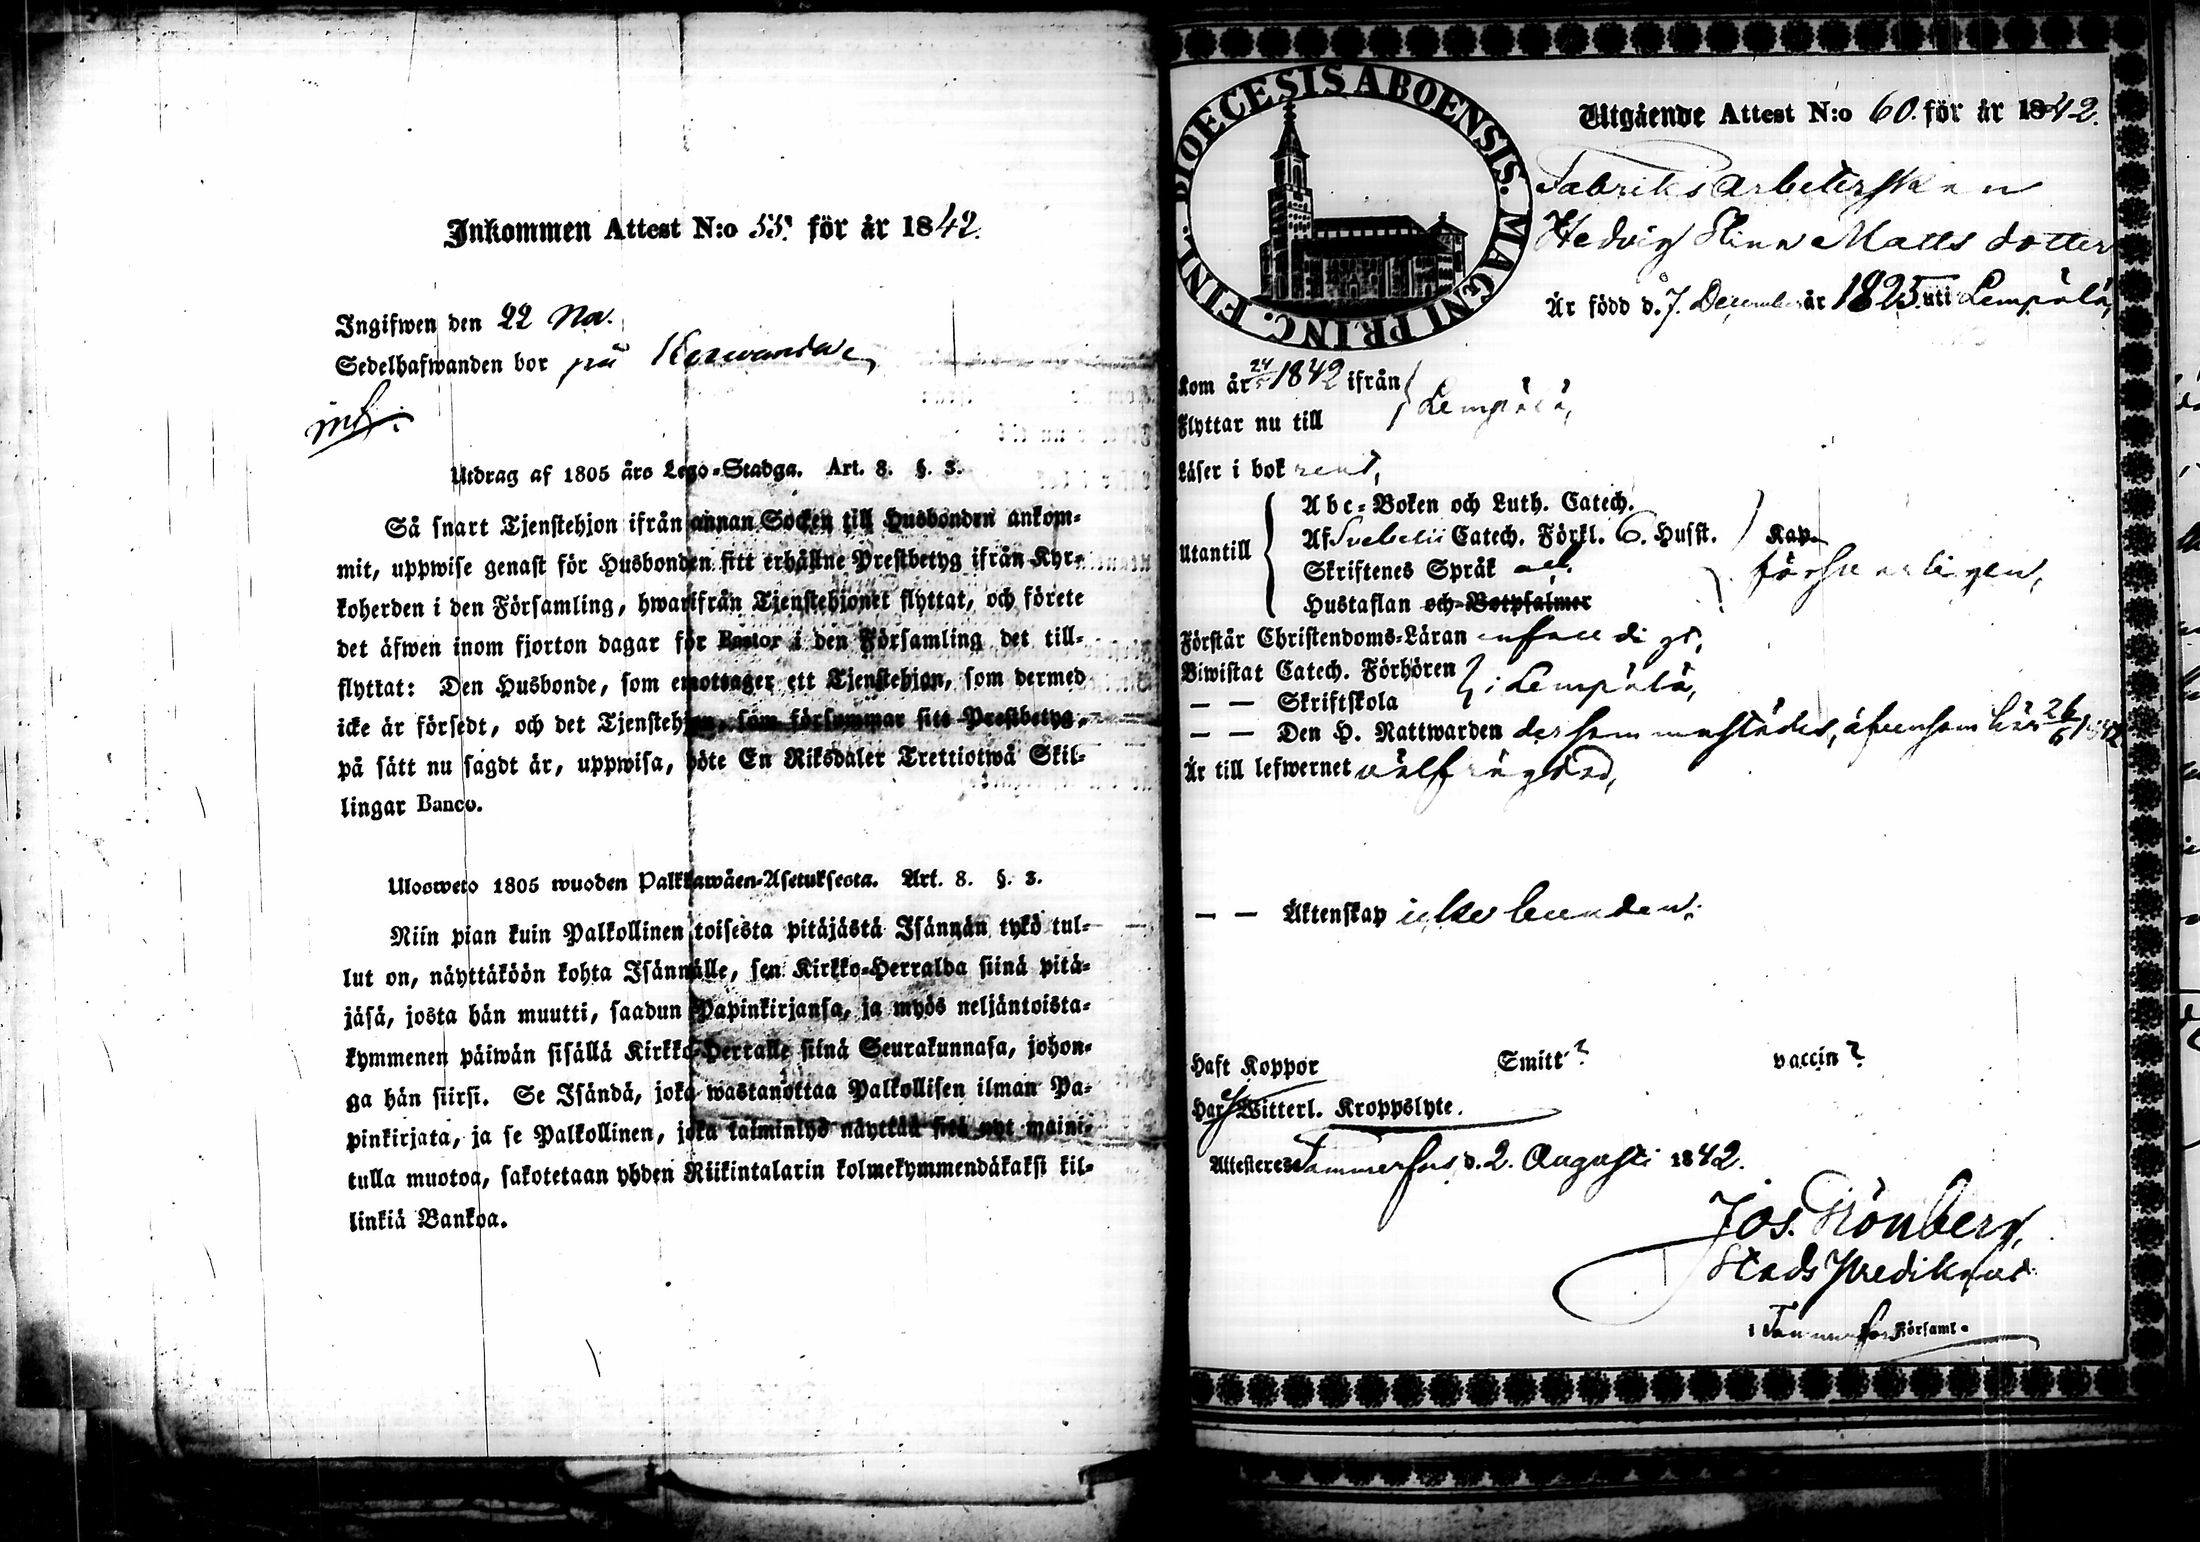 Inkommen Attest N:o 55. för år 1842.
Ingifwen den 22 Nov.
Sedelhafwanden bor på
inf.
Utdrag af 1805 års Lego-Stadga. Art. 8. §. 3.
Så snart Tjenstehjon ifrån annan Socken till Husbonden ankom-
mit, uppwise genast för Husbonden sitt erhållne Prestbetyg ifrån Kyr-
koherden i den Församling, hwarifrån Tjenstehjonet flyttat, och förete
det äfwen inom fjorton dagar för Pastor i den Församling det till-
flyttat: Den Husbonde, som emottager ett Tjenstehjon, som dermed
icke är försedt, och det Tjenstehjon, som försummar sitt Prestbetyg,
på sätt nu sagdt är, uppwisa, böte En Riksdaler Trettiotwå Skil-
lingar Banco.
Ulosweto 1805 wuoden Palkkawäen-Asetuksesta. Art. 8. §. 3.
Niin pian kuin Palkollinen toisesta pitäjästä Isännän tykö tul-
lut on, näyttäköön kohta Isännälle, sen Kirkko-Herralda siinä pitä-
jäsä, josta hän muutti, saadun Papinkirjansa, ja myös neljäntoista-
kymmenen päiwän sisällä Kirkko-Herralle siinä Seurakunnasa, johon-
ga hän siirsi. Se Isändä, joka wastanottaa Palkollisen ilman Pa-
pinkirjata, ja se Palkollinen, joka laiminlyö näyttää sitä nyt maini-
tulla muotoa, sakotetaan yhden Riikintalarin kolmekymmendäkaksi kil-
linkiä Bankoa.
DIOECESIS ABOENSIS. MAGNI PRINC. FINL.
Utgående Attest N:o 60. för år 1842.
Fabriks arbeterskan
Hedvig Stina Matts dotter
Är född d. 7. December år 1825 uti Lempälä,
Kom år 1842 ifrån
Flyttar nu till
Lempälä,
Läser i bok rent,
Utantill
Abc-Boken och Luth. Catech.
Af Svebelii Catech. Förkl. 6. Husst.
Skriftenes Språk
Hustaflan och Botpsalmer
Kap.
församlingen,
Förstår Christendoms-Läran enfaldigt,
Biwistat Catech. Förhören
— — Skriftskola
i Lempälä,
— — Den H. Nattwarden dersammastädes, äfvensom här 26/6 1842
Är till lefwernet välfrägdad,
— — Äktenskap icke bunden.
Haft Koppor Smitt? vaccin?
Har Witterl. Kroppslyte.
Attesteres Tammerfors d. 2. Augusti 1842.
Jos. Grönberg,
Stads Predikant
i Tammerfors Församl.